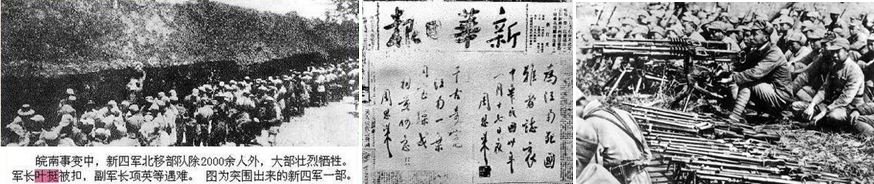 皖南事变中，新四军北移部队除2000余人外，大部壮烈牺牲。
军长叶挺被扣，副军长项英等遇难。 图为突围出来的新四军一部。
新華日報
為江南死國
難者誌哀
中華民國卅年
一月十七日夜
周恩來
千古奇冤
江南一葉
同室操戈
相煎何急
周恩來